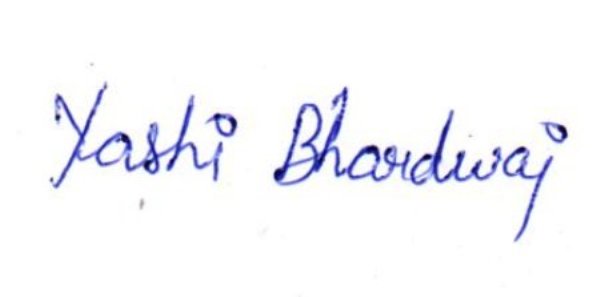 Yashi Bhardwaj